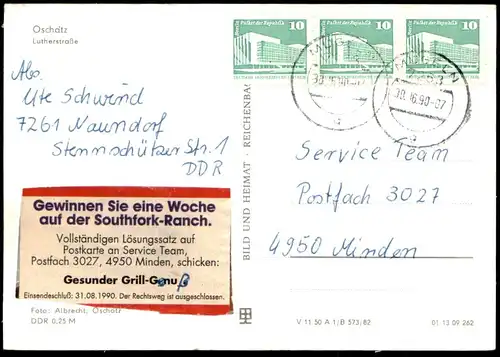 Oschatz
Lutherstraße
Berlin Palast der Republik 10
Berlin Palast der Republik 10
Berlin Palast der Republik 10
Abs.
Ute Schwind
7261 Naundorf
Stennschützer Str. 1
DDR
Gewinnen Sie eine Woche
auf der Southfork-Ranch.
Vollständigen Lösungssatz auf
Postkarte an Service Team,
Postfach 3027, 4950 Minden, schicken:
Gesunder Grill-Genuß
Einsendeschluß: 31.08.1990. Der Rechtsweg ist ausgeschlossen.
Foto: Albrecht, Oschatz
DDR 0,25 M
BILD UND HEIMAT · REICHENBA
Service Team
Postfach 3027
4950 Minden
V 11 50 A 1/B 573/82
01 13 09 262